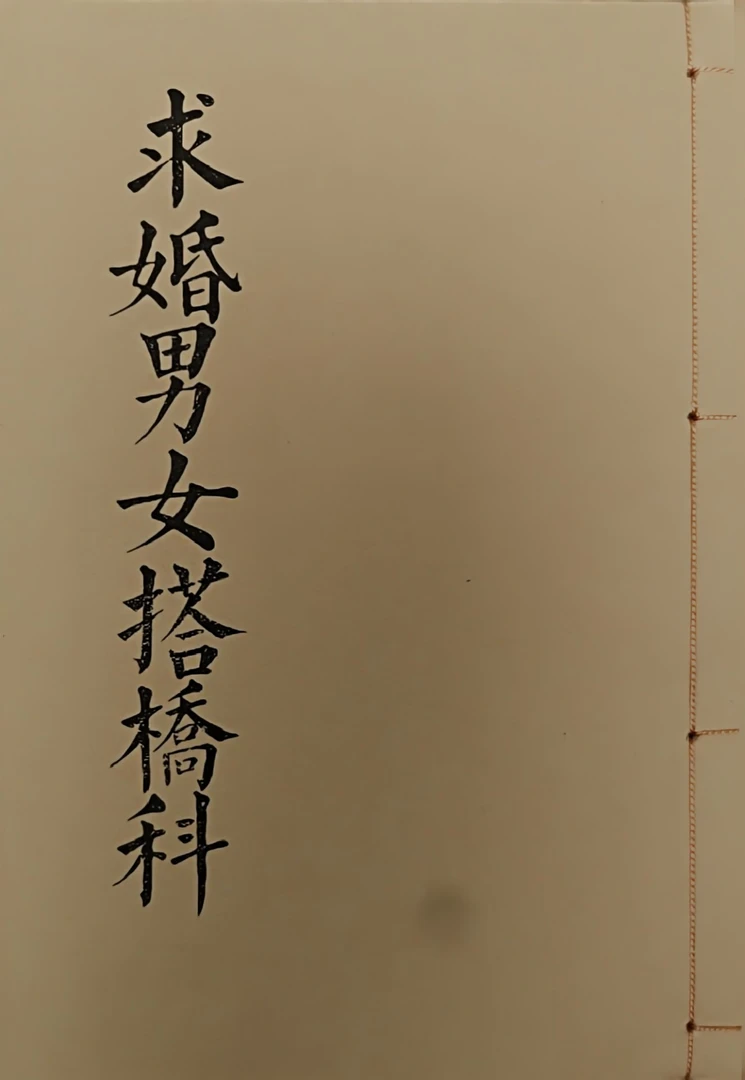 求婚男女搭橋科